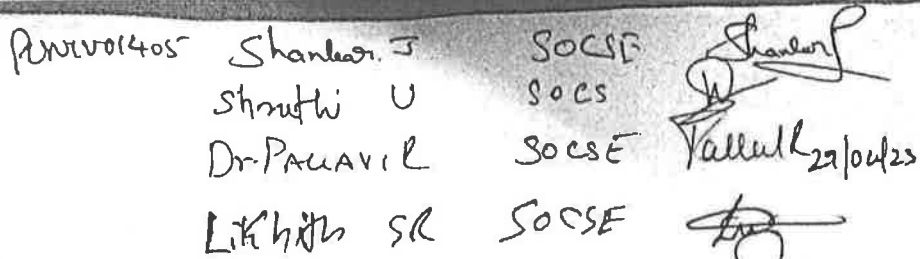 Shankar. J SOCSE Shankar J
Shruthi U SOCS
Dr. PALLAVI R SOCSE Pallavi R 27/04/23
Likhith SR SOCSE